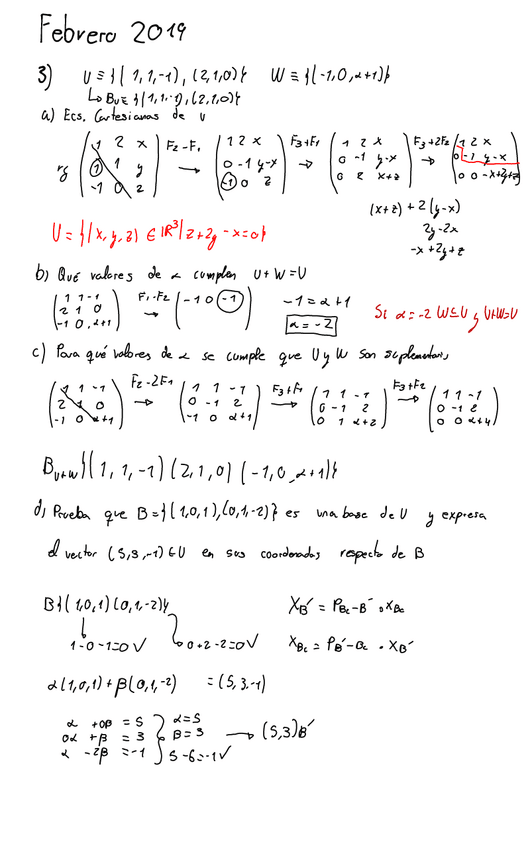 Febrero 2019
3) U ≡ {(1,1,-1), (2,1,0)} W ≡ {(-1,0,α+1)}
↳ Bu ≡ {(1,1,-1),(2,1,0)}
a) Ecs. Cartesianas de U
rg (1 2 x F2-F1 (1 2 x F3+F1 (1 2 x F3+2F2 (1 2 x
1 1 y → 0 -1 y-x → 0 -1 y-x → 0 -1 y-x
-1 0 z) -1 0 z) 0 2 x+z) 0 0 -x+2y+z)
(x+z) + 2(y-x)
2y-2x
-x+2y+z
U = {(x,y,z) ∈ IR³/ z+2y-x=0}
b) Qué valores de α cumplen U+W=U
(1 1 -1 F1-F2 (-1 0 -1) -1 = α+1
2 1 0 →
-1 0 α+1) α=-2
Si α=-2 W⊆U y U+W=U
c) Para qué valores de α se cumple que U y W son suplementarios
(1 1 -1 F2-2F1 (1 1 -1 F3+F1 (1 1 -1 F3+F2 (1 1 -1
2 1 0 → 0 -1 2 → 0 -1 2 → 0 -1 2
-1 0 α+1) -1 0 α+1) 0 1 α+2) 0 0 α+4)
Bu+w {(1,1,-1) (2,1,0) (-1,0,α+1)}
d) Prueba que B={(1,0,1),(0,1,-2)} es una base de U y expresa
el vector (5,3,-1) ∈ U en sus coordenadas respecto de B
B{(1,0,1)(0,1,-2)}
1-0-1=0 ✓ 0+2-2=0 ✓
XB' = PBc-B' · XBc
XBc = PB'-Bc · XB'
α(1,0,1)+β(0,1,-2) = (5,3,-1)
α +0β = 5 } α=5
0α +β = 3 } β=3 → (5,3)B'
α -2β = -1 } 5-6=-1 ✓